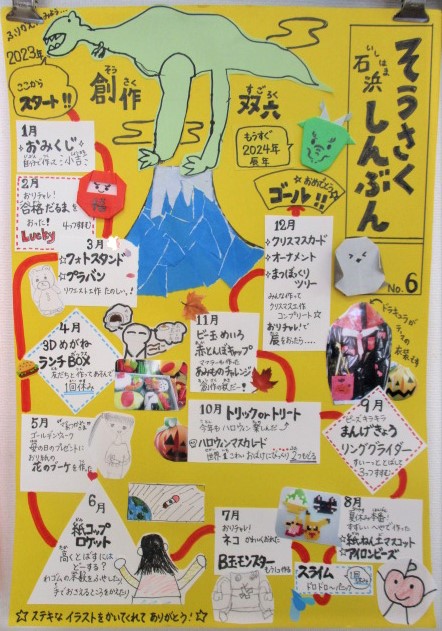 ふりかえってみよう…
2023年
ここから
スタート!!
そうさく
創作
すごろく
双六
もうすぐ
2024年
辰年
おめでとう
ゴール!!
いしはま
石浜
そうさく
しんぶん
No.6
1月
☆おみくじ☆
自分で作って…小吉
2月
おりチャレ!
合格だるまを
おった!
Lucky
4つすすむ
3月
☆フォトスタンド
☆グラバン
リクエスト工作 たのしい!
4月
3Dめがね
ランチBOX
友だちと作ってあそんで
1回休み
5月
ゴールデンウィーク
母の日のプレゼントに
おり紙の
花のブーケを作った
6月
紙コップ
ロケット
高くとばすには
どーする?
わゴムの本数をふやしたり
7月
おりチャレ!
ネコ かわいくおれた
B玉モンスター
8月
夏休み本番!
すずしいへやで作った
☆紙ねん土マスコット
☆アイロンビーズ
スライム
ドロドローッ
1回休み
9月
ビーズキラキラ
まんげきょう
リンググライダー
すい〜っととばして
3つすすむ
10月 トリックorトリート
今年も ハロウィン 楽しんだ
ハロウィンマスカレード
2つもどる
11月
ビー玉めいろ
赤とんぼキャップ
あみものチャレンジ
創作の秋だー!
12月
クリスマスカード
オーナメント
まつぼっくり
ツリー
みんな作って
クリスマス工作
コンプリート☆
おりチャレ!で
辰をおったら…
ドラキュラが
テーマの
☆ステキなイラストをかいてくれて ありがとう!☆